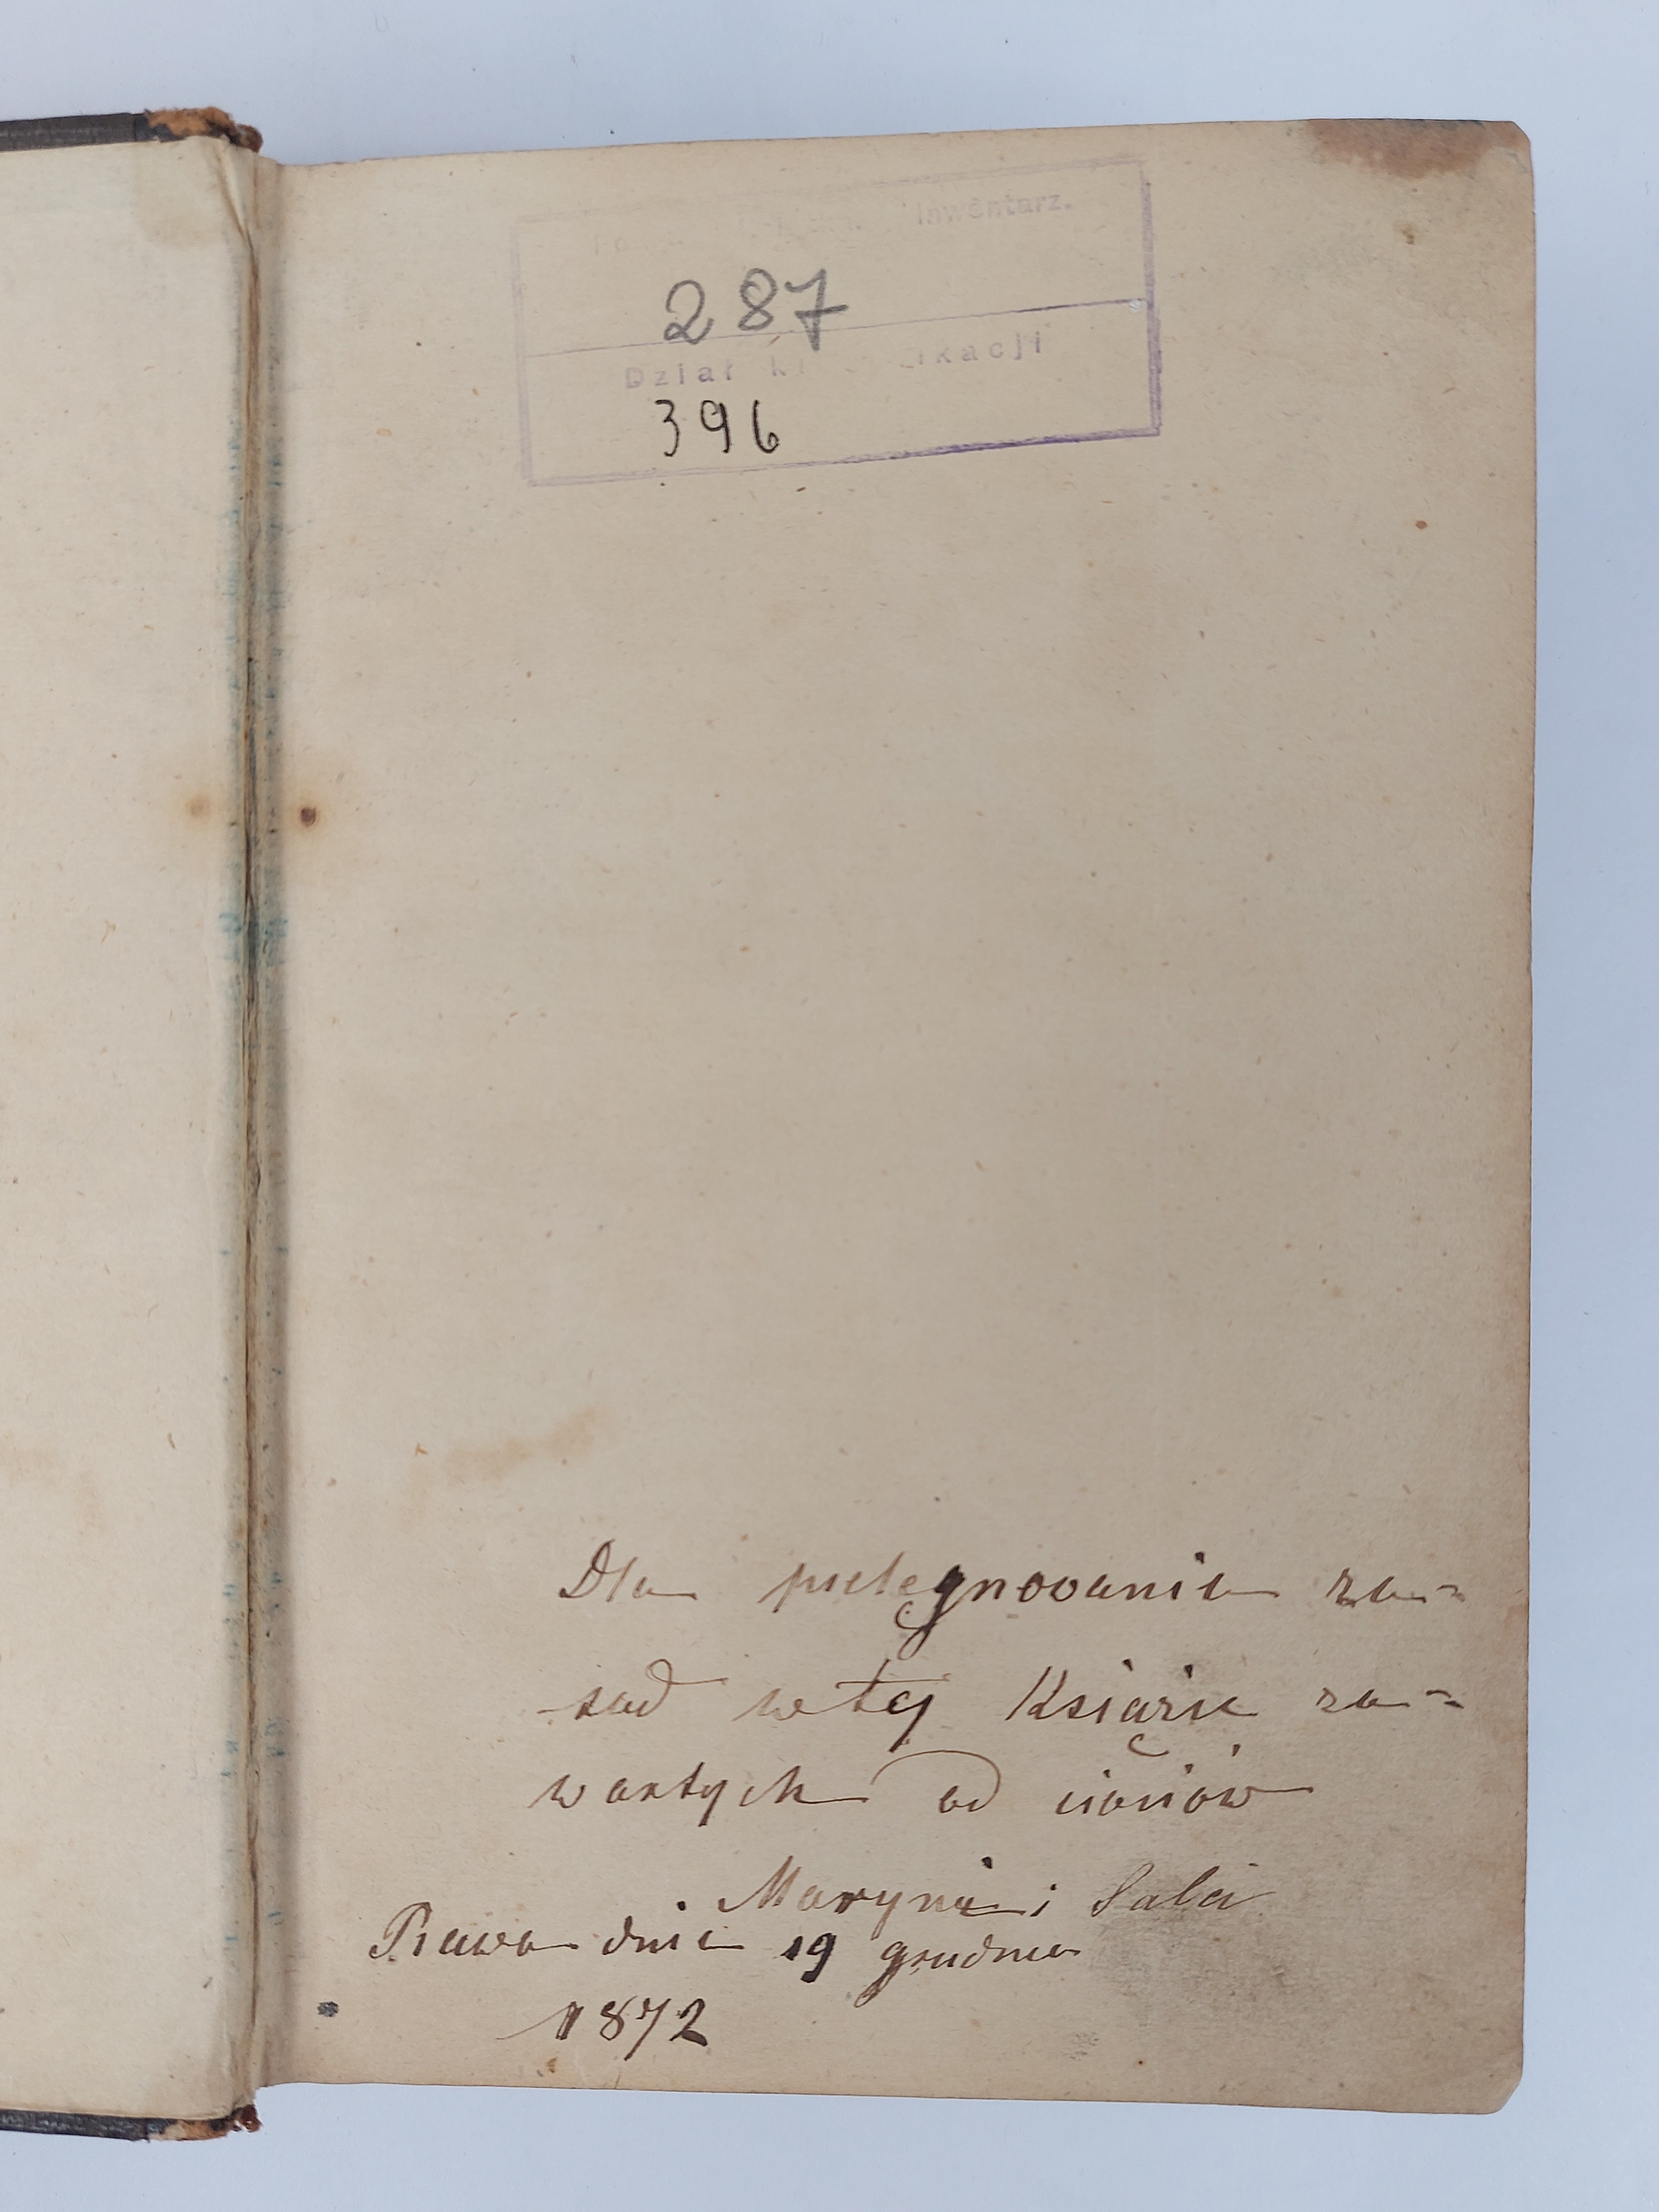 Inwentarz.
287
Dział
396
Dla pielęgnowania za=
sad w tej Książce za=
wartych od
Maryni i
Rawa dnia 19 grudnia
1872